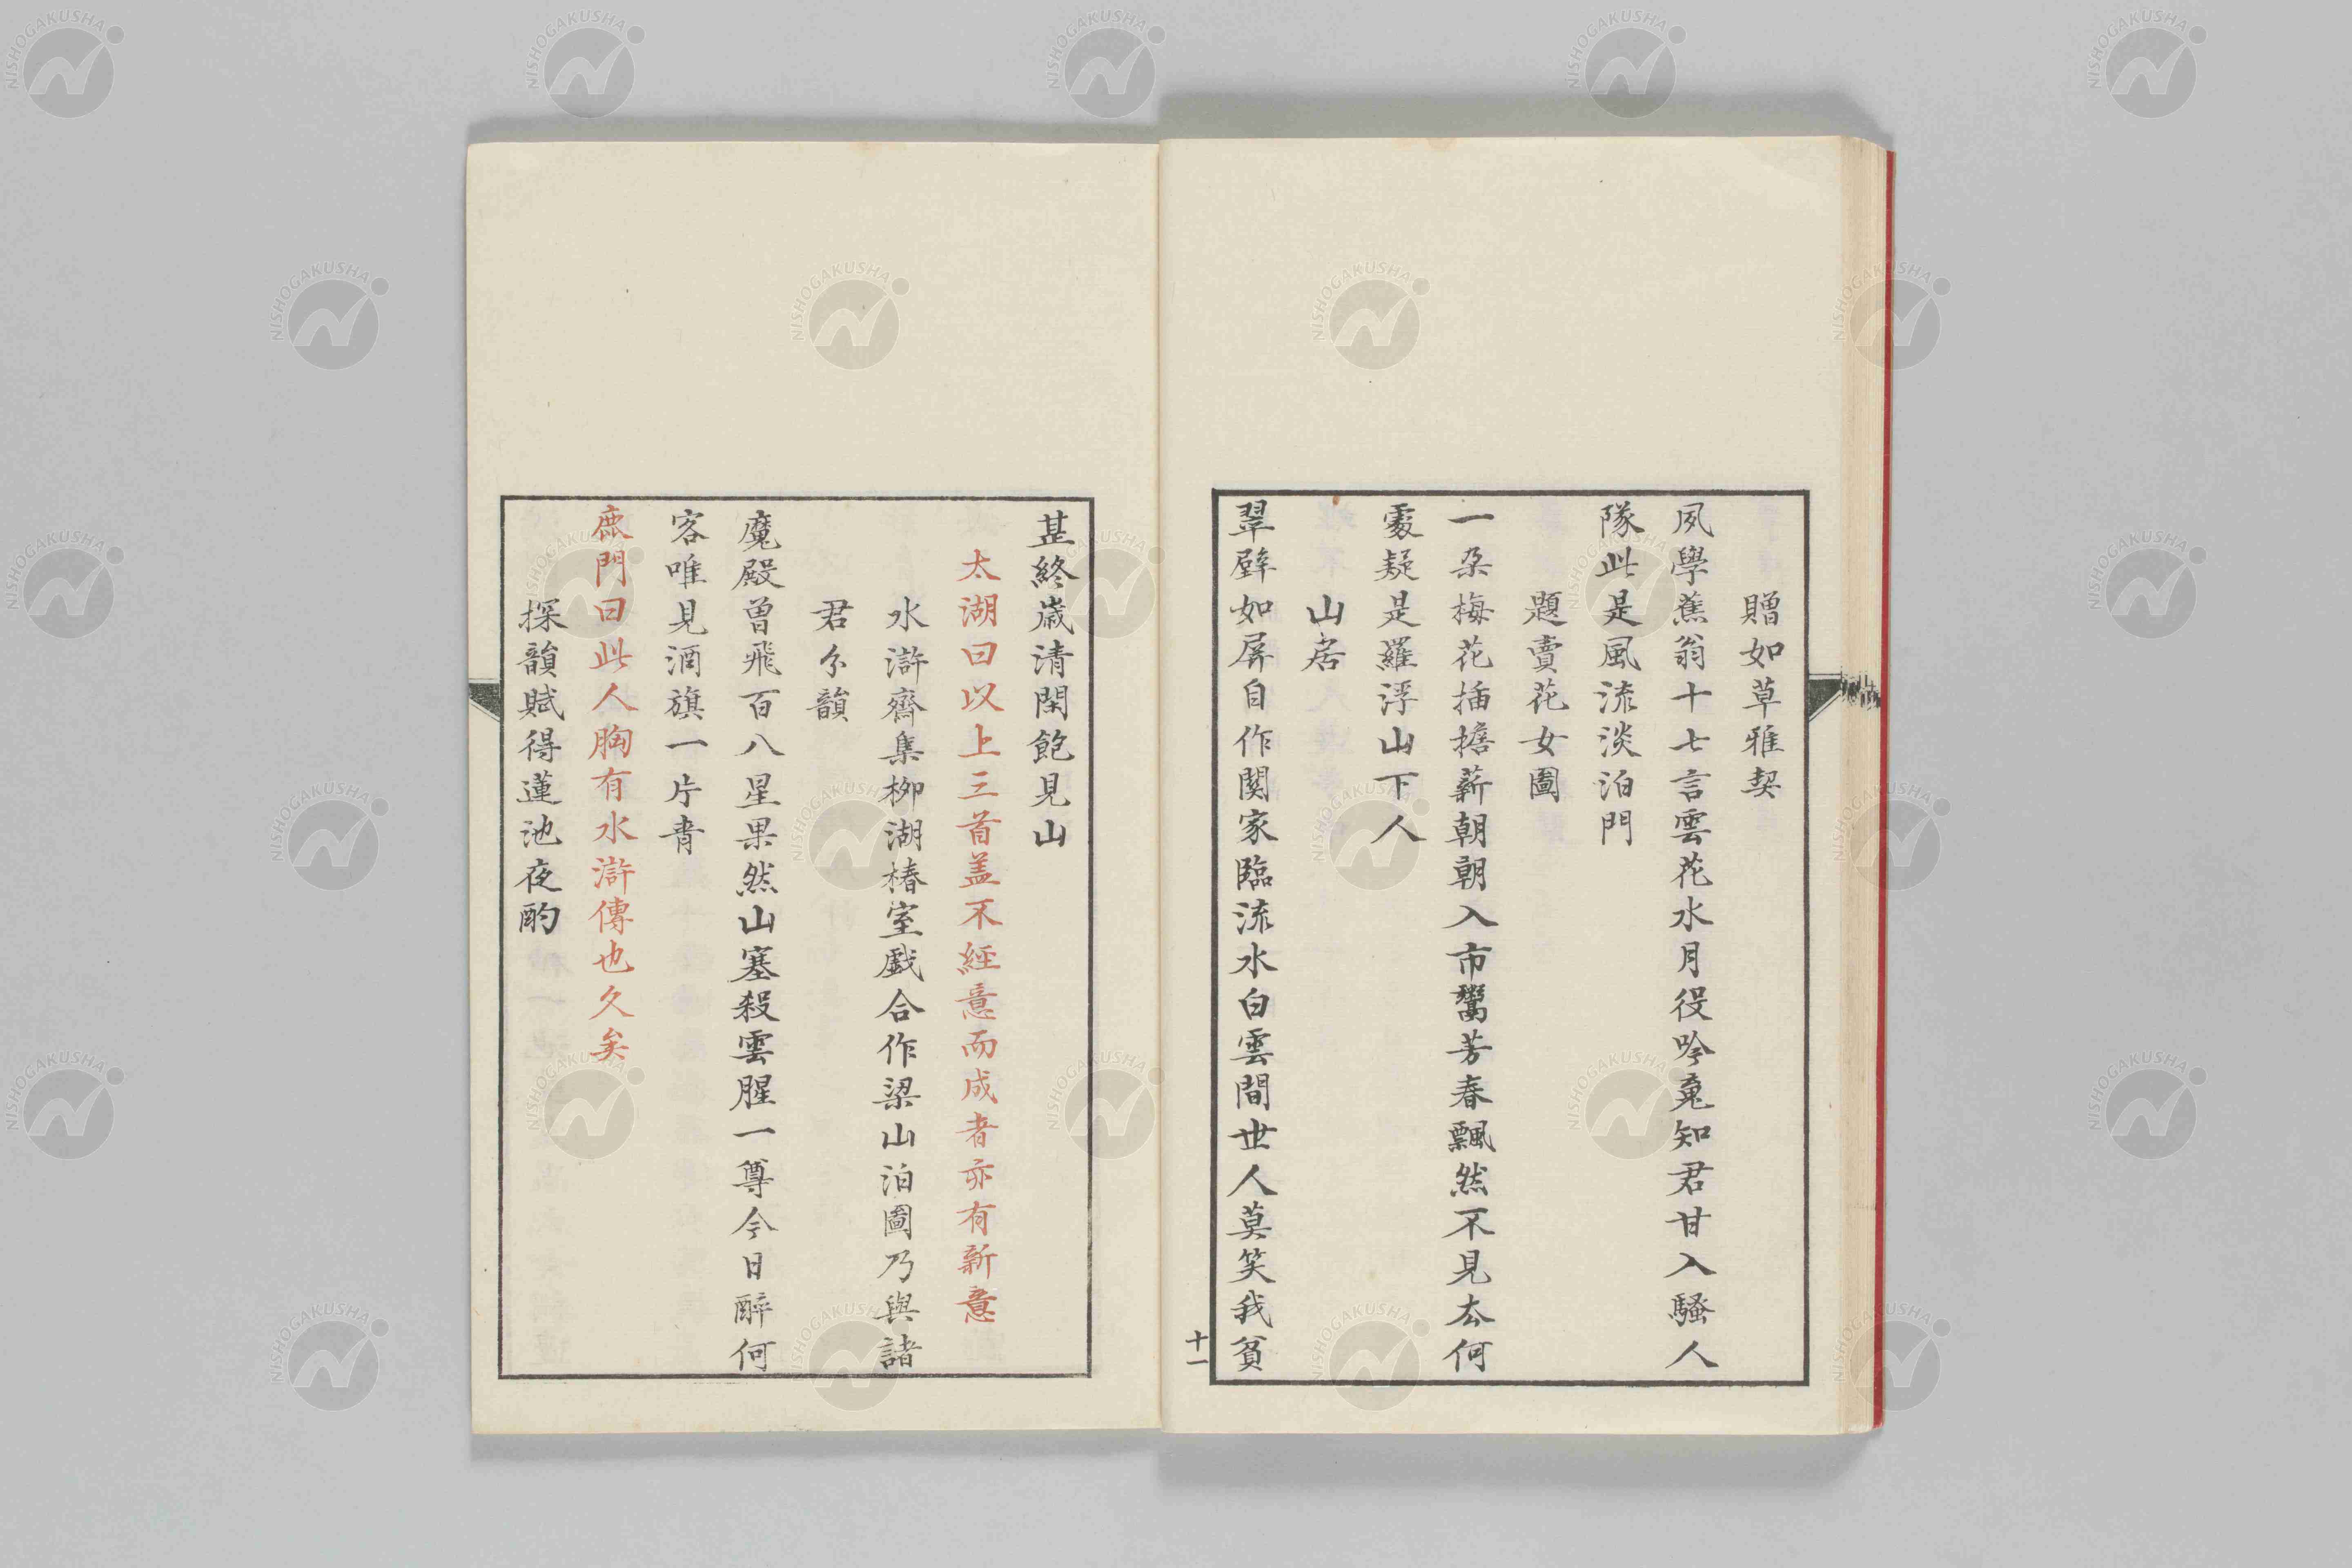 贈如草雅契
夙學蕉翁十七言雲花水月役吟䰟知君甘入騷人
隊此是風流淡泊門
題賣花女圖
一朶梅花插擔薪朝朝入市鬻芳春飄然不見厺何
處疑是羅浮山下人
山居
翠壁如屏自作関家臨流水白雲間世人莫笑我貧
十一
甚終歲清閑飽見山
太湖曰以上三首盖不經意而成者亦有新意
水滸齋集柳湖椿室戲合作梁山泊圖乃與諸
君分韻
魔殿曽飛百八星果然山塞殺雲腥一尊今日醉何
客唯見酒旗一片青
鹿門曰此人胸有水滸傳也久矣
探韻賦得蓮池夜酌
NISHOGAKUSHA